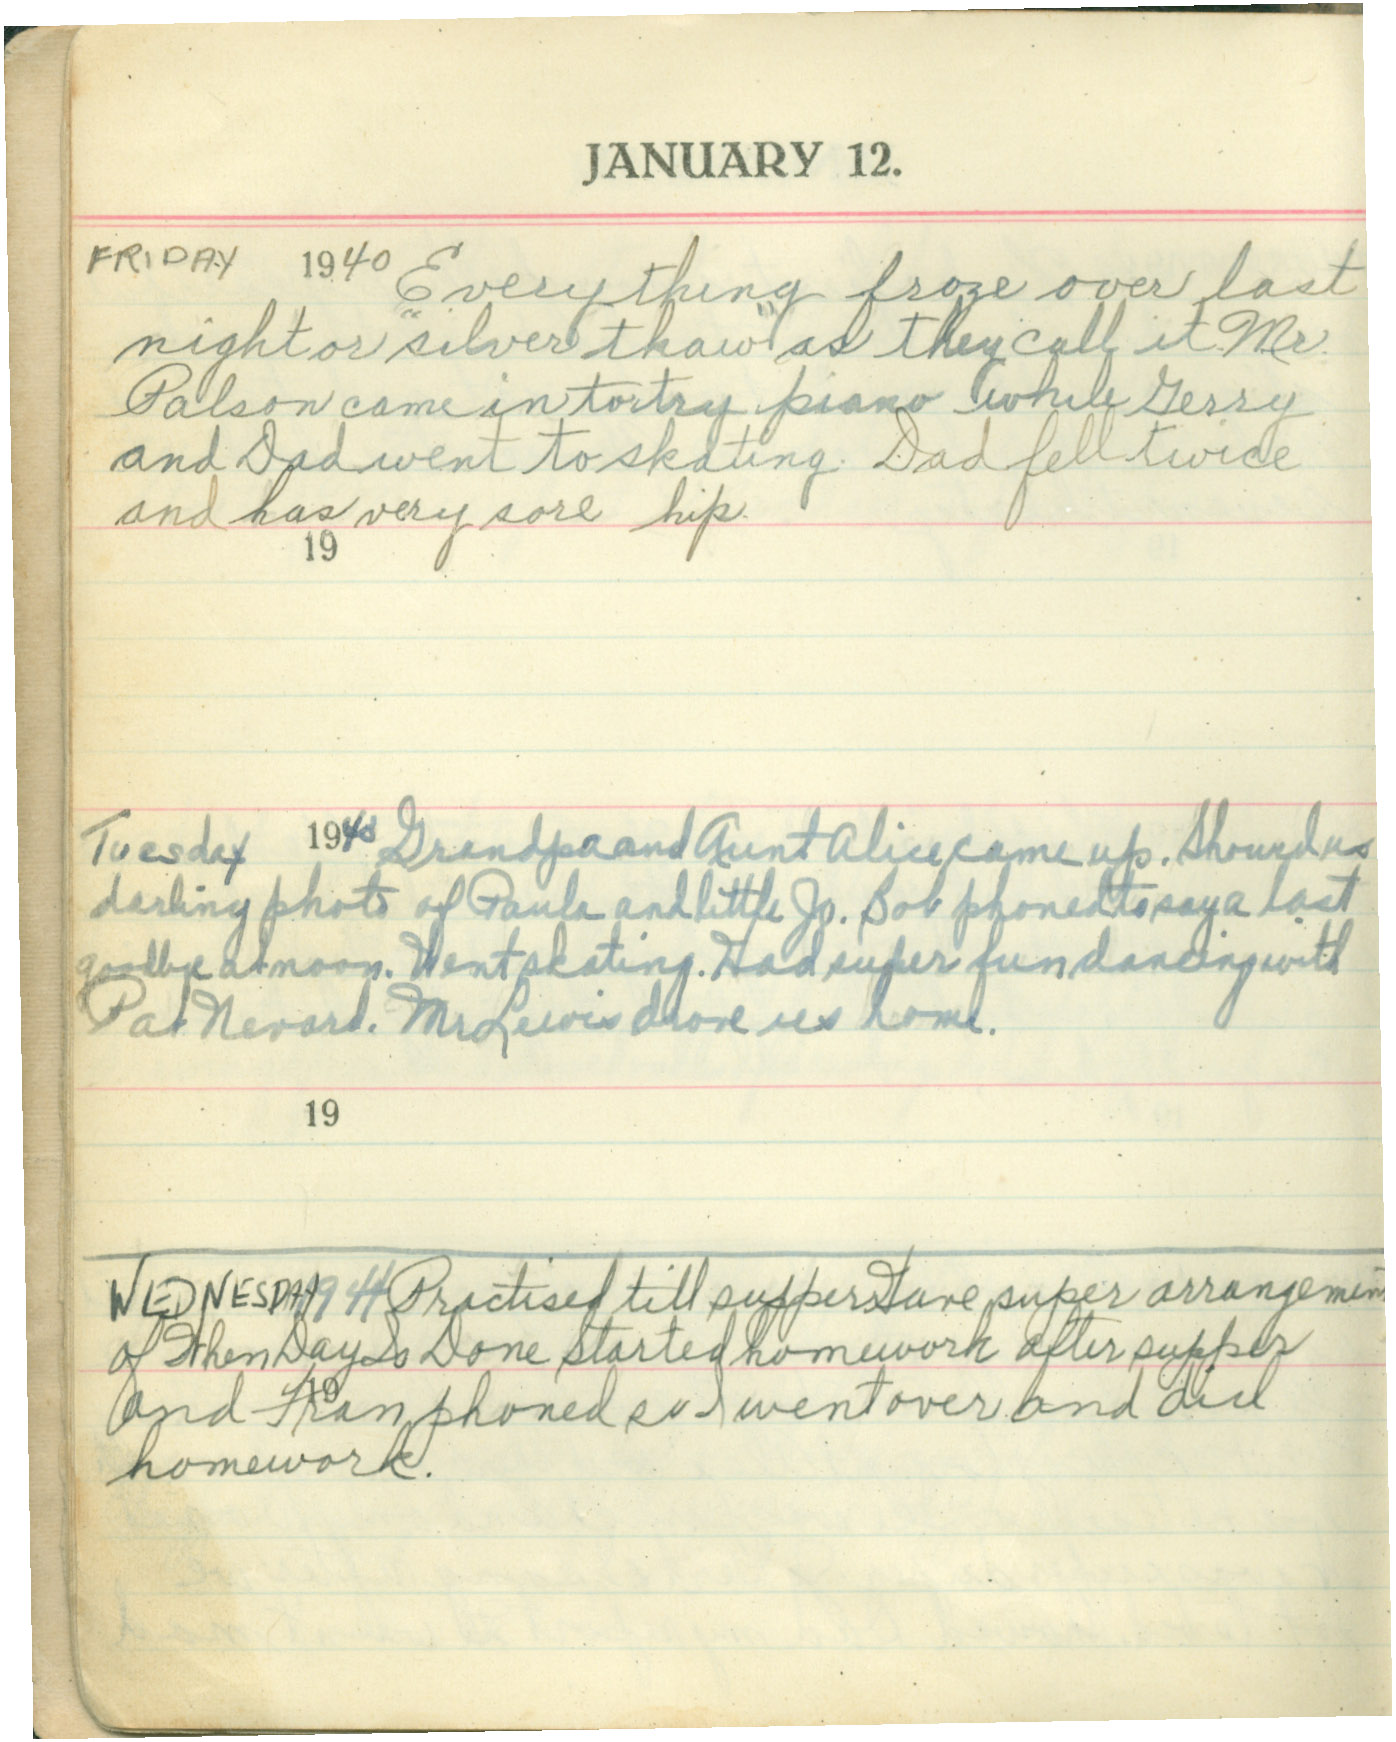 JANUARY 12.
FRIDAY 1940 Everything froze over last
night or "silver thaw" as they call it. Mr.
Palson came in to try piano while Gerry
and Dad went to skating. Dad fell twice
and has very sore hip.
19
Tuesday 19 Grandpa and Aunt Alice came up. Showed us
darling photo of Paula and little Jo. Bob phoned to say a last
goodbye at noon. Went skating. Had super fun dancing with
Pat Nevard. Mr Lewis drove us home.
19
WEDNESDAY 1944 Practised till supper. Have super arrangement
of When Day Is Done Started homework after supper
19
and Fran phoned so I went over and did
homework.